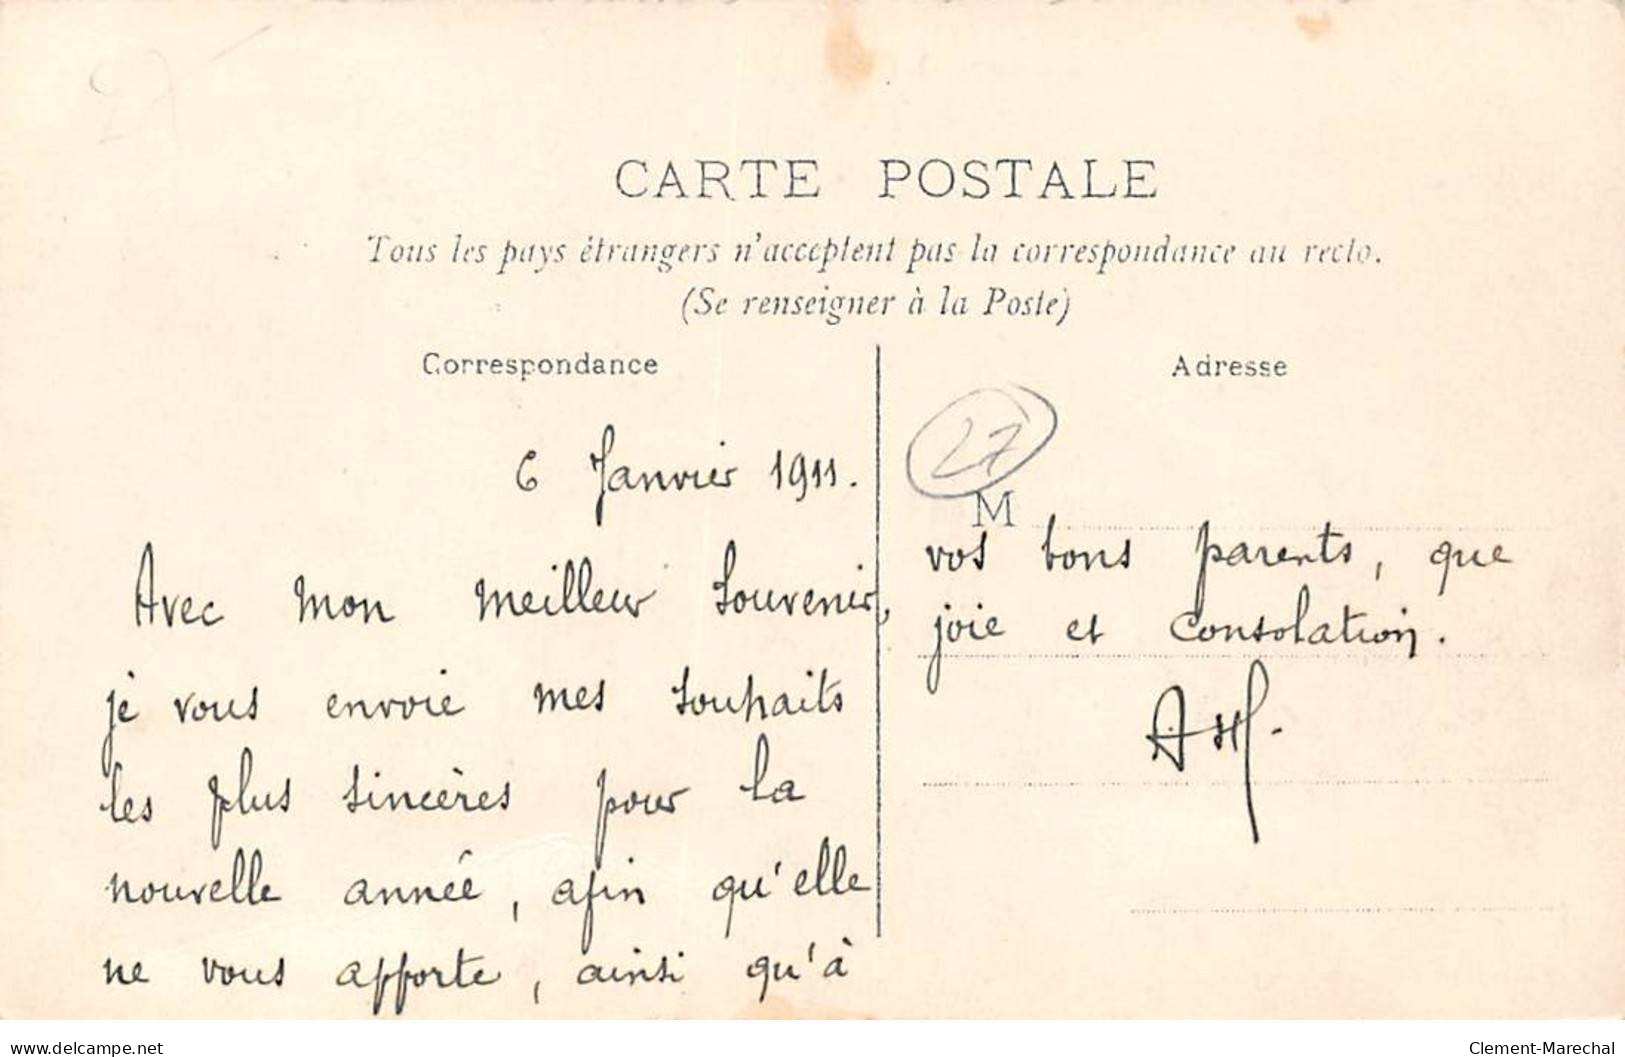 27
CARTE POSTALE
Tous les pays étrangers n'acceptent pas la correspondance au recto.
(Se renseigner à la Poste)
Correspondance
6 Janvier 1911.
Avec mon meilleur souvenir,
je vous envoie mes souhaits
les plus sincères pour la
nouvelle année, afin qu'elle
ne vous apporte, ainsi qu'à
Adresse
27
M
vos bons parents, que
joie et consolation.
delcampe.net
Clement-Marechal